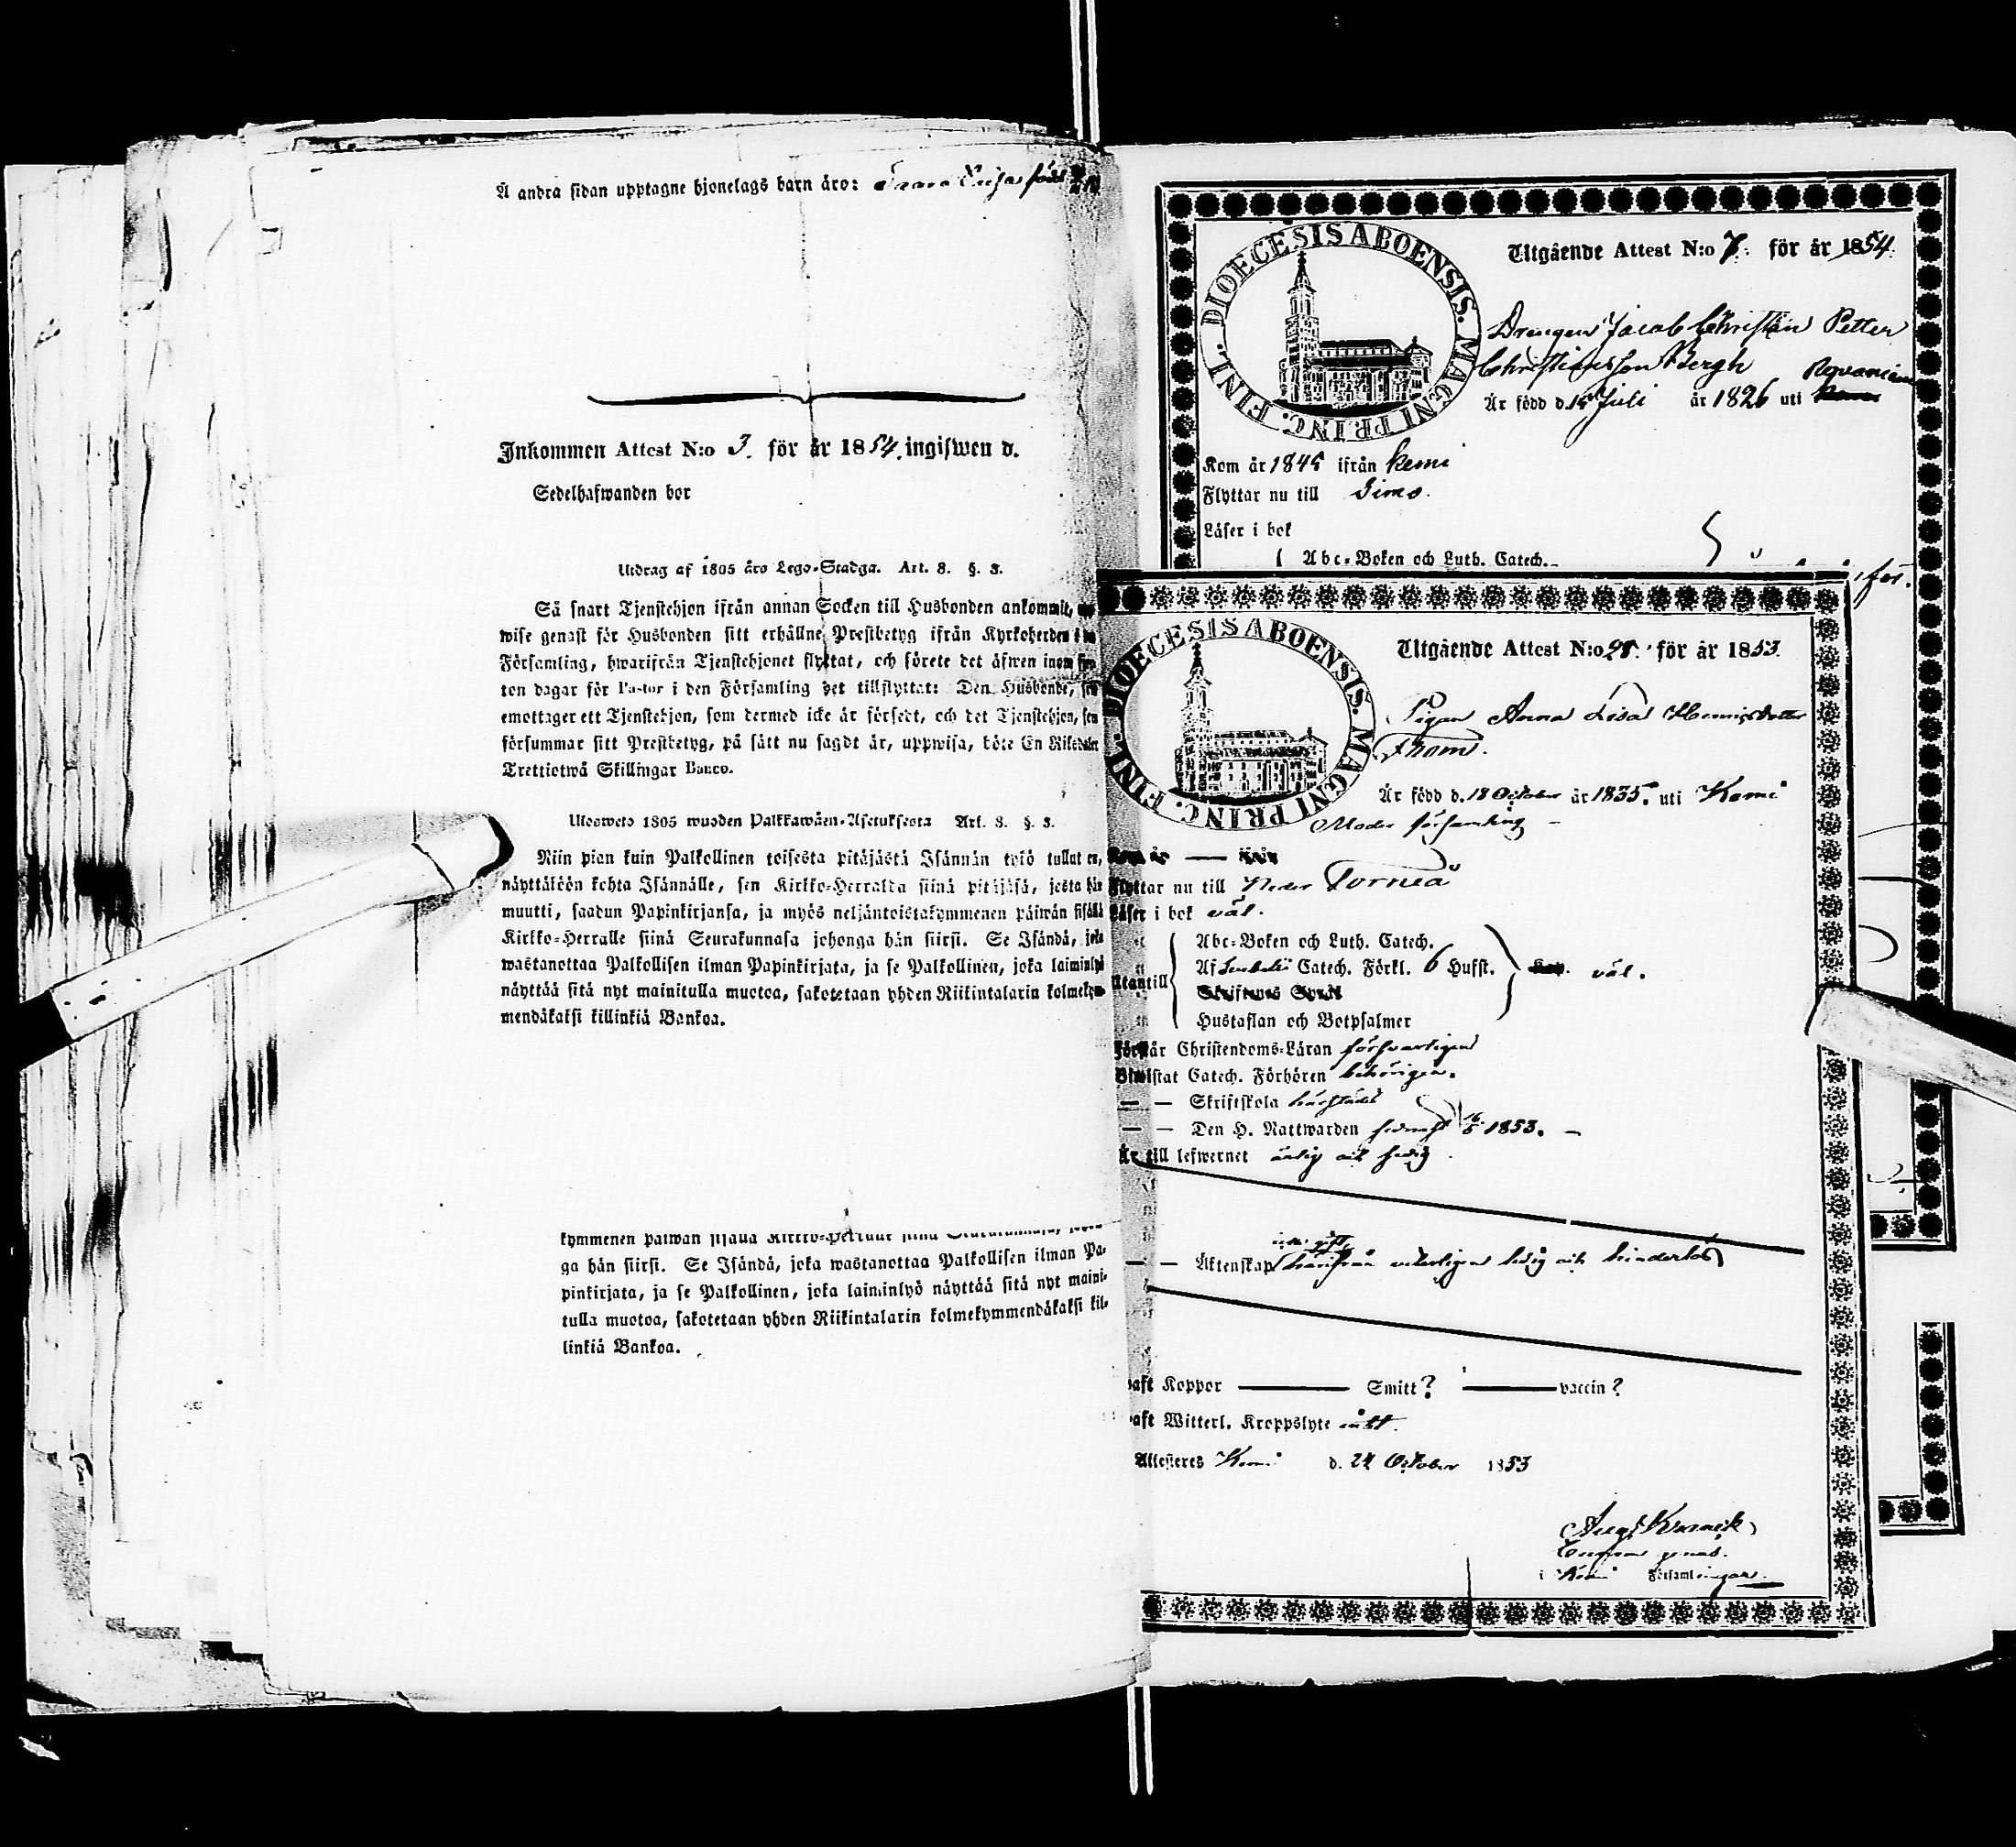 Å andra sidan upptagne hjonelags barn äro: född
Inkommen Attest N:o 3. för år 1854. ingifwen d.
Sedelhafwanden bor
Utdrag af 1805 års Lego-Stadga. Art. 8. §. 3.
Så snart Tjenstehjon ifrån annan Socken till Husbonden ankommit,
wise genast för Husbonden sitt erhållne Prestbetyg ifrån Kyrkoherden
Församling, hwarifrån Tjenstehjonet flyttat, och förete det äfwen inom
ton dagar för Pastor i den Församling det tillflyttat: Den Husbonde,
emottager ett Tjenstehjon, som dermed icke är försedt, och det Tjenstehjon,
försummar sitt Prestbetyg, på sätt nu sagdt är, uppwisa, böte En Riksdaler
Trettiotwå Skillingar Banco.
Ulosweto 1805 wuoden Palkkawäen-Asetuksesta Art. 8. §. 3.
Niin pian kuin Palkollinen toisesta pitäjästä Isännän työ tullut on,
näyttäköön kohta Isännälle, sen Kirkko-Herralda siinä pitäjäsä, josta hän
muutti, saadun Papinkirjansa, ja myös neljäntoistakymmenen päiwän sisällä
Kirkko-Herralle siinä Seurakunnasa johonga hän siirsi. Se Isändä, joka
wastanottaa Palkollisen ilman Papinkirjata, ja se Palkollinen, joka laiminlyö
näyttää sitä nyt mainitulla muotoa, sakotetaan yhden Riikintalarin kolmekym-
mendäkaksi killinkiä Bankoa.
kymmenen päiwän sisällä
ga hän siirsi. Se Isändä, joka wastanottaa Palkollisen ilman Pa-
pinkirjata, ja se Palkollinen, joka laiminlyö näyttää sitä nyt maini-
tulla muotoa, sakotetaan yhden Riikintalarin kolmekymmendäkaksi kil-
linkiä Bankoa.
DIOECESIS ABOENSIS. MAGNI PRINC. FINL.
Utgående Attest N:o 7. för år 1854.
Drengen Jacob Christian Petter
Christiansson Bergh
Rovaniemi
Är född d. 15 Juli år 1826 uti
Kom år 1845 ifrån Kemi
Flyttar nu till Simo.
Läser i bok
Abc-Boken och Luth. Catech.
DIOECESIS ABOENSIS. MAGNI PRINC. FINL.
Utgående Attest N:o 98. för år 1853.
Pigan Anna Lisa Henricsdotter
Frome.
Är född d. 18 October år 1835. uti Kemi
Moder församling
Kom år — ifrån
Flyttar nu till Neder Torneå
Läser i bok väl.
Utantill
Abc-Boken och Luth. Catech.
Af Catech. Förkl. 6 Hufst. väl.
Skriftenes Språk
Hustaflan och Botpsalmer
Förstår Christendoms-Läran försvarligen
Bewistat Catech. Förhören behörigen.
— — Skriftskola härstädes
— — Den H. Nattwarden senast 16/5 1853.
Är till lefwernet ärlig och sedig
— — Äktenskap härifrån veterligen ledig och hinderlös
haft Koppor — Smitt? — vaccin?
haft Witterl. Kroppslyte intet.
Attesteres Kemi d. 24 October 1853
Aug. Kranck
i Kemi Församlingar.